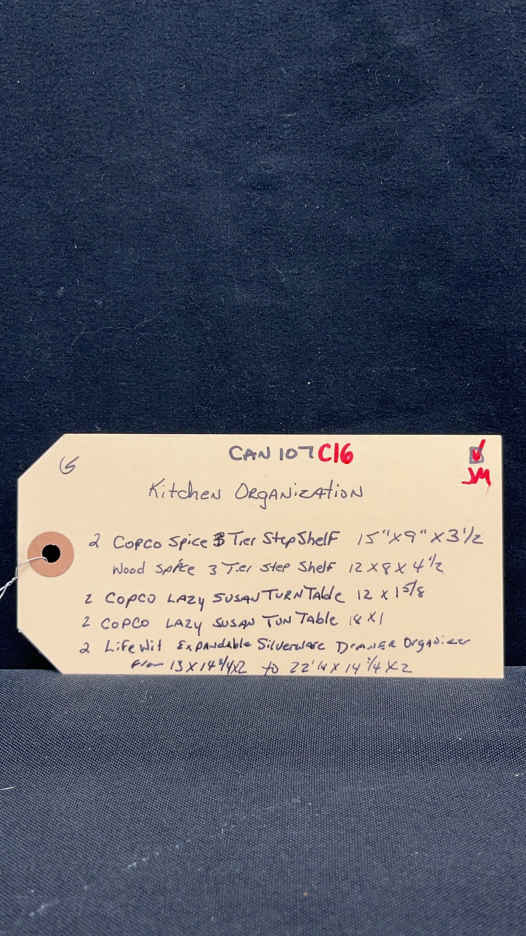 CAN 107 C16
JM
Kitchen Organization
2 Copco Spice 3 Tier Step Shelf 15" x 9" x 3 1/2
Wood Spice 3 Tier Step Shelf 12 x 8 x 4 1/2
2 Copco Lazy Susan Turn Table 12 x 1 5/8
2 Copco Lazy Susan Tun Table 18 x 1
2 LifeWit Expandable Silverware Drawer Organizer
From 13 x 14 1/4 x 2 to 22 1/4 x 14 1/4 x 2